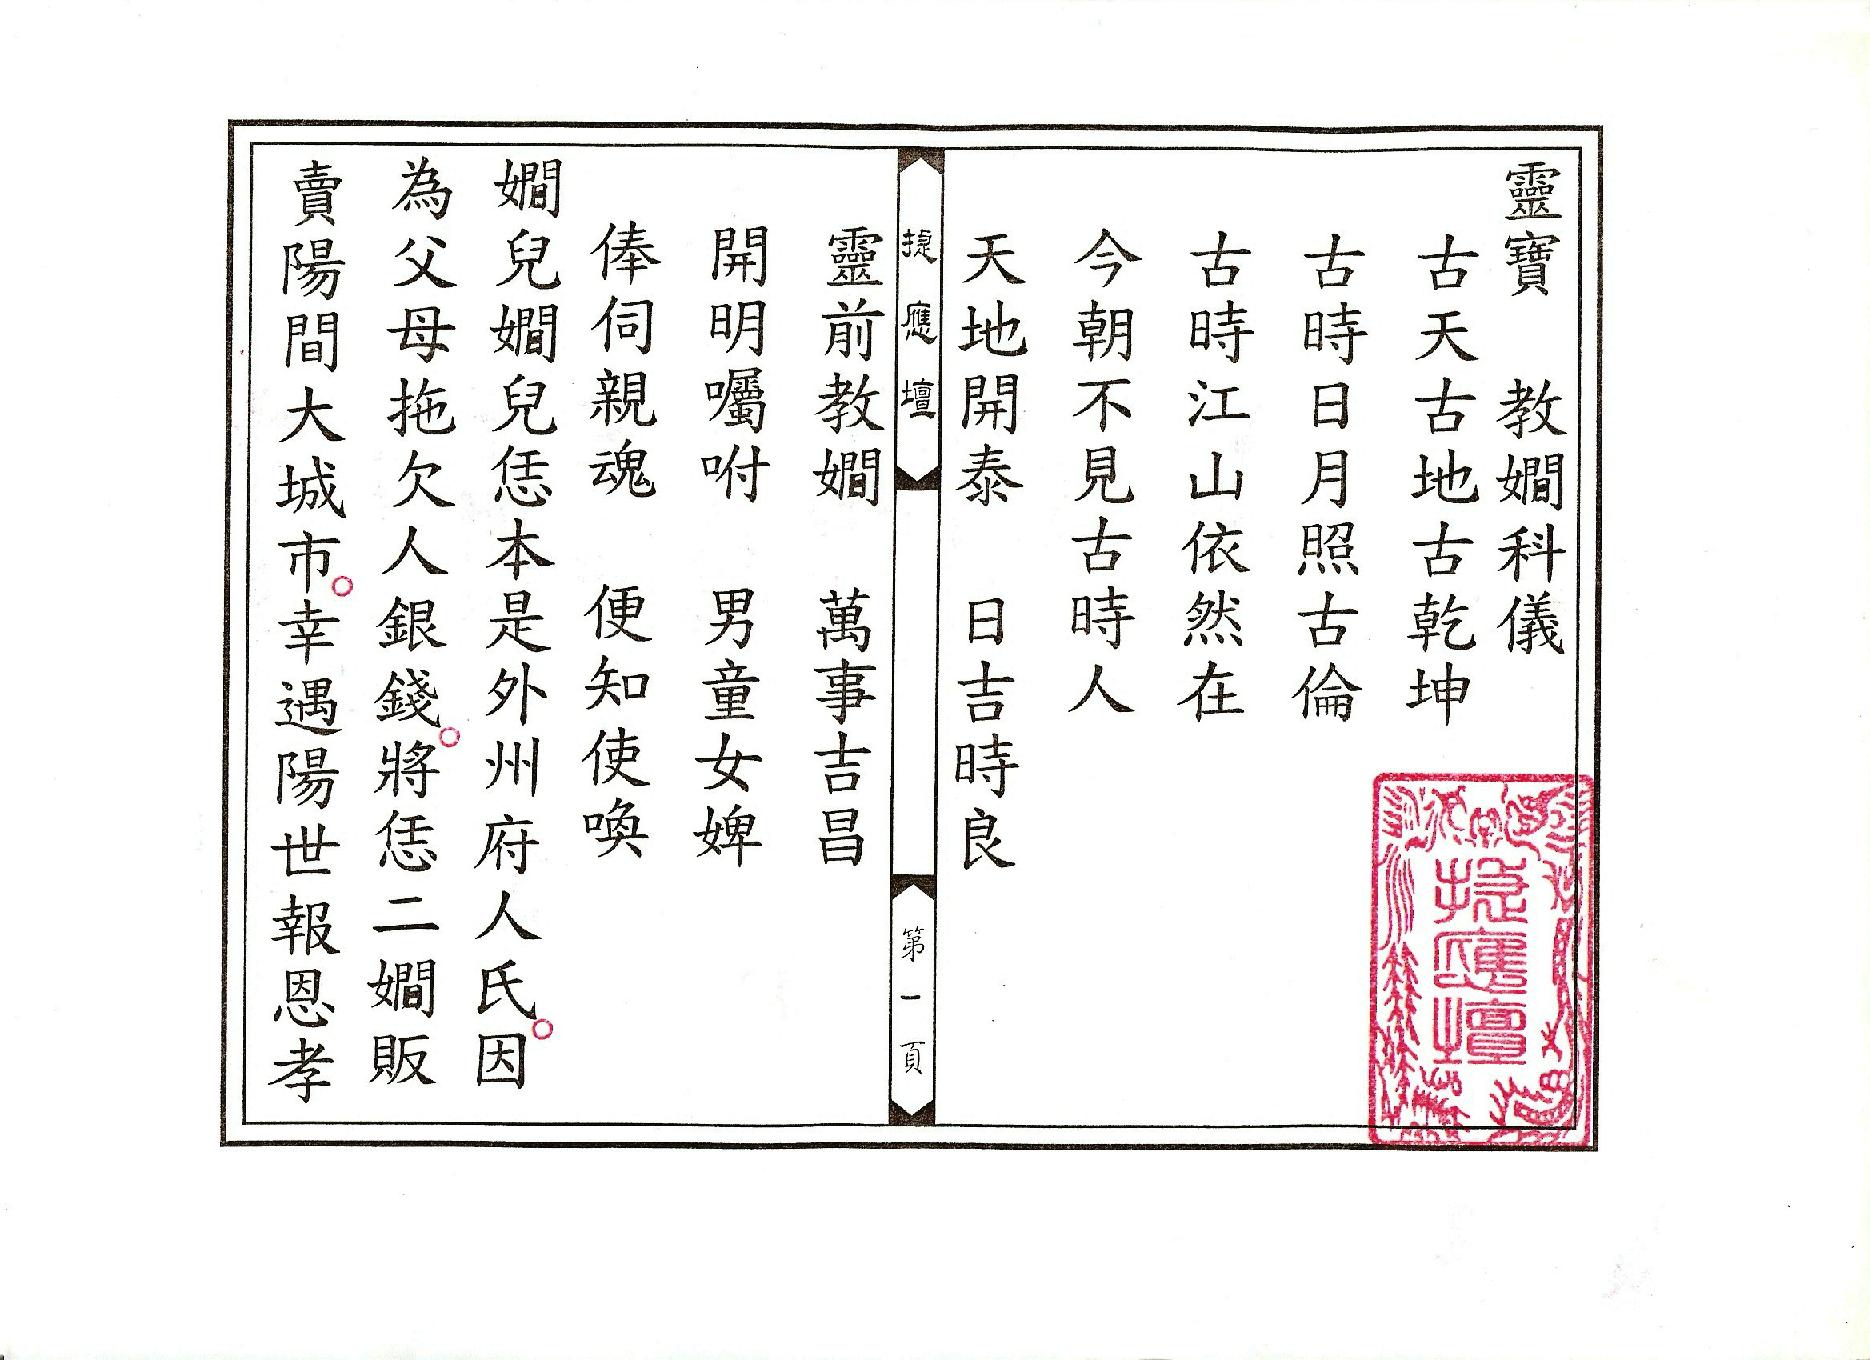 靈寶　教嫺科儀
古天古地古乾坤
古時日月照古倫
古時江山依然在
今朝不見古時人
天地開泰　日吉時良
捷應壇
第一頁
靈前教嫺　萬事吉昌
開明囑咐　男童女婢
俸伺親魂　便知使喚
嫺兒嫺兒恁本是外州府人氏。因
為父母拖欠人銀錢。將恁二嫺販
賣陽間大城市。幸遇陽世報恩孝
捷應壇